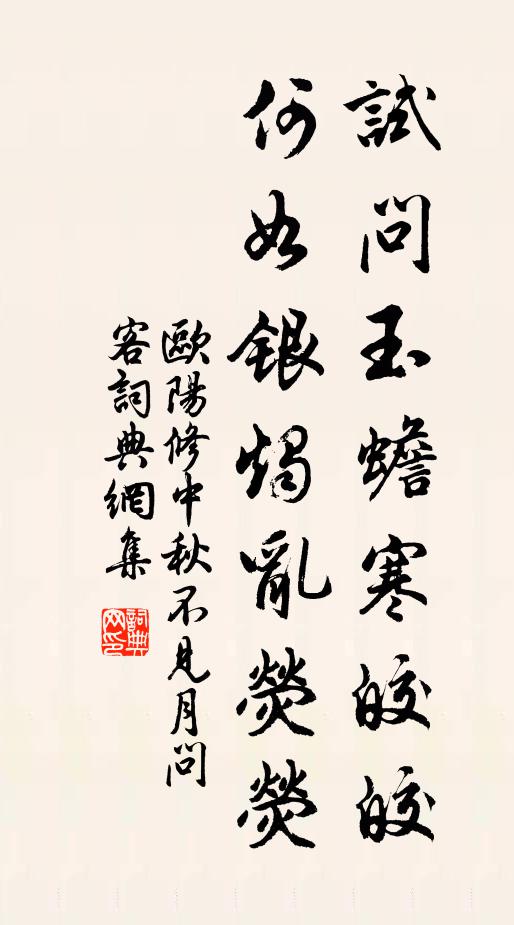 試問玉蟾寒皎皎
何如銀燭亂熒熒
歐陽修中秋不見月問
客詞典網集
詞典
网印